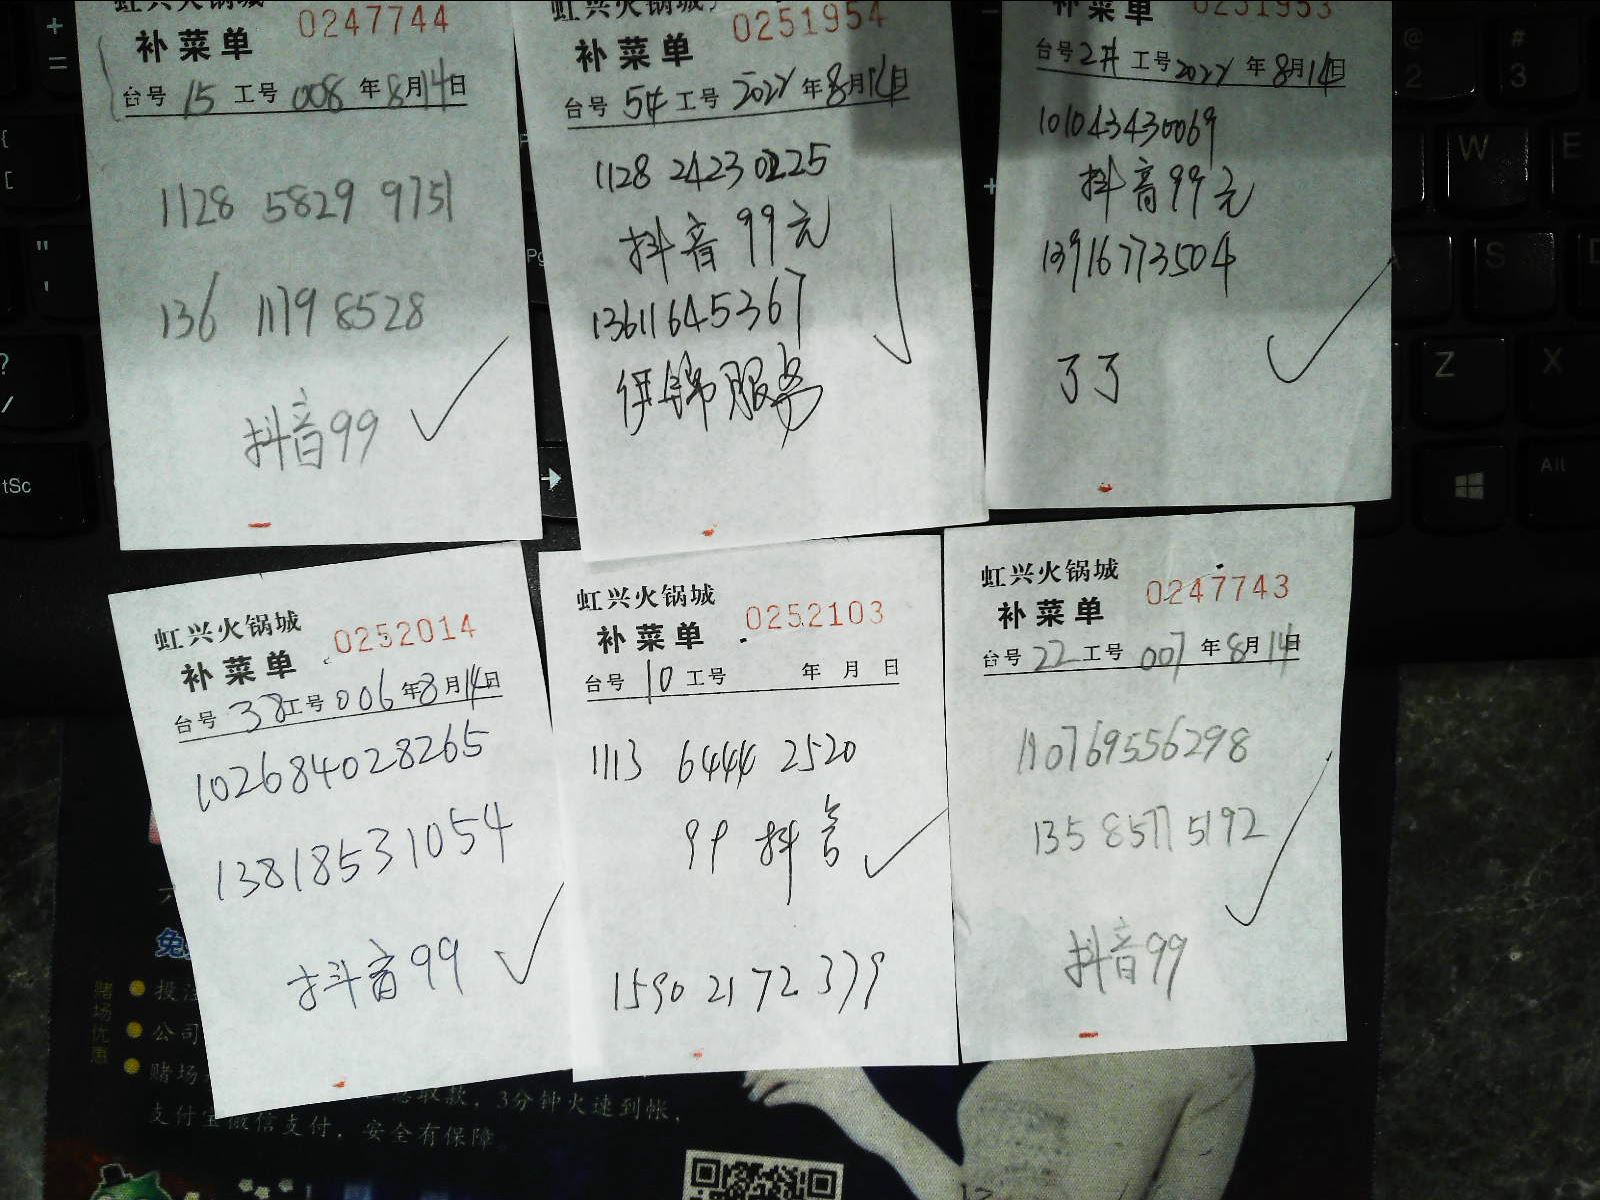 虹兴火锅城
0247744
补菜单
台号 15 工号 008 年 8月14日
1128 5829 9751
136 1179 8528
抖音99
虹兴火锅城
0251954
补菜单
台号 54 工号 2022 年 8月14日
1128 2423 0225
抖音99元
13611645367
服务
0251953
补菜单
台号 2# 工号 2022 年 8月14日
101043430069
抖音99元
13916773504
了了
虹兴火锅城
0252014
补菜单
台号 38 工号 006 年 8月14日
102684028265
13818531054
抖音99
虹兴火锅城
0252103
补菜单
台号 10 工号 年 月 日
1113 6444 2520
99 抖音
1590 2172 379
虹兴火锅城
0247743
补菜单
台号 22 工号 007 年 8月14日
110769556298
135 8577 5192
抖音99
赌场优惠
投注
公司
赌场
收款，3分钟火速到帐，
支付宝微信支付，安全有保障
+
=
{
[
"
'
?
/
tSc
@
2
#
3
W
E
S
D
Z
X
Alt